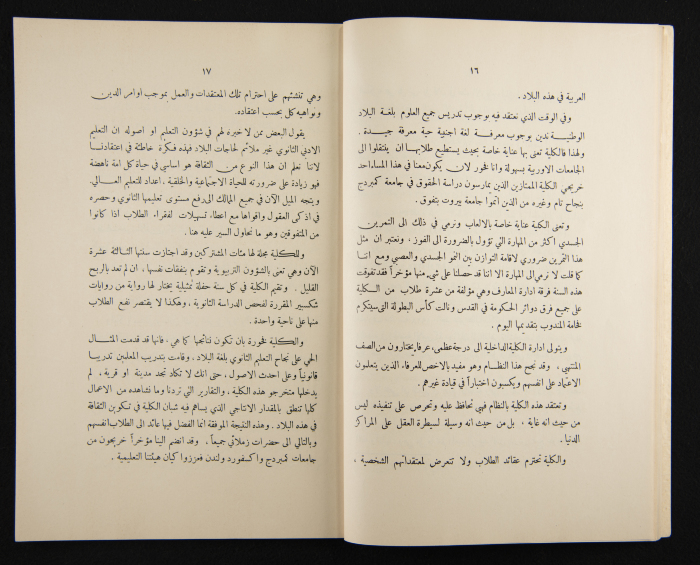 ١٦
العربية في هذه البلاد .
وفي الوقت الذي نعتقد فيه بوجوب تدريس جميع العلوم بلغة البلاد
الوطنية ندين بوجوب معرفة لغة اجنبية حية معرفة جيدة .
ولهذا فالكلية تعنى بها عناية خاصة بحيث يستطيع طلابها ان ينتقلوا الى
الجامعات الاوربية بسهولة وانا فخور لان يكون معنا في هذا المساء احد
خريجي الكلية الممتازين الذين يمارسون دراسة الحقوق في جامعة كمبردج
بنجاح تام وغيره من الذين اتموا جامعة بيروت بتفوق .
وتعنى الكلية عناية خاصة بالالعاب ونرمي في ذلك الى التمرين
الجسدي اكثر من المهارة التي تؤول بالضرورة الى الفوز . ونعتبر ان مثل
هذا التمرين ضروري لاقامة التوازن بين النمو الجسدي والعصبي ومع اننا
كما قلت لا نرمي الى المهارة الا اننا قد حصلنا على شيء منها مؤخراً فقد تفوقت
هذه السنة فرقة ادارة المعارف وهي مؤلفة من عشرة طلاب من الكلية
على جميع فرق دوائر الحكومة في القدس ونالت كأس البطولة التي سيتكرم
فخامة المندوب بتقديمها اليوم .
ويتولى ادارة الكلية الداخلية الى درجة عظمى، عرفاء يختارون من الصف
المنتهي ، وقد نجح هذا النظام وهو مفيد بالاخص للعرفاء الذين يتعلمون
الاعتماد على انفسهم ويكسبون اختباراً في قيادة غيرهم .
وتعتقد هذه الكلية بالنظام فهي تحافظ عليه وتحرص على تنفيذه ليس
من حيث انه غاية ، بل من حيث انه وسيلة لسيطرة العقل على المراكز
الدنيا .
والكلية تحترم عقائد الطلاب ولا تتعرض لمعتقداتهم الشخصية ،
١٧
وهي تنشئهم على احترام تلك المعتقدات والعمل بموجب اوامر الدين
ونواهيه كل بحسب اعتقاده .
يقول البعض ممن لا خبرة لهم في شؤون التعليم او اصوله ان التعليم
الادبي الثانوي غير ملائم لحاجات البلاد فهذه فكرة خاطئة في اعتقادنا
لاننا نعلم ان هذا النوع من الثقافة هو اساسي في حياة كل امة ناهضة
فهو زيادة على ضرورته للحياة الاجتماعية والخلقية ، اعداد للتعليم العالي.
ويتجه الميل الآن في جميع الممالك الى رفع مستوى تعليمها الثانوي وحصره
في اذكى العقول واقواها مع اعطاء تسهيلات لفقراء الطلاب اذا كانوا
من المتفوقين وهو ما نحاول السير عليه هنا .
وللكلية مجلة لها مئات المشتركين وقد اجتازت سنتها الثالثة عشرة
الآن وهي تعنى بالشؤون التربوية وتقوم بنفقات نفسها ، ان لم تعد بالربح
القليل . وتقيم الكلية في كل سنة حفلة تمثيلية يختار لها رواية من روايات
شكسبير المقررة لفحص الدراسة الثانوية . وهكذا لا يقتصر نفع الطلاب
منها على ناحية واحدة .
والكلية فخورة بان تكون نتائجها كما هي . فانها قد قدمت المثال
الحي على نجاح التعليم الثانوي بلغة البلاد . وقامت بتدريب المعلمين تدريبا
قانونياً وعلى احدث الاصول ، حتى انك لا تكاد تجد مدينة او قرية ، لم
يدخلها متخرجو هذه الكلية ، والتقارير التي تردنا وما نشاهده من الاعمال
كلها تنطق بالمقدار الانتاجي الذي يساهم فيه شبان الكلية في تكوين الثقافة
في هذه البلاد . وهذه النتيجة الموفقة انما الفضل فيها عائد الى الطلاب انفسهم
وبالتالي الى حضرات زملائي جميعاً . وقد انضم الينا مؤخراً خريجون من
جامعات كمبردج واكسفورد ولندن فعززوا كيان هيئتنا التعليمية .